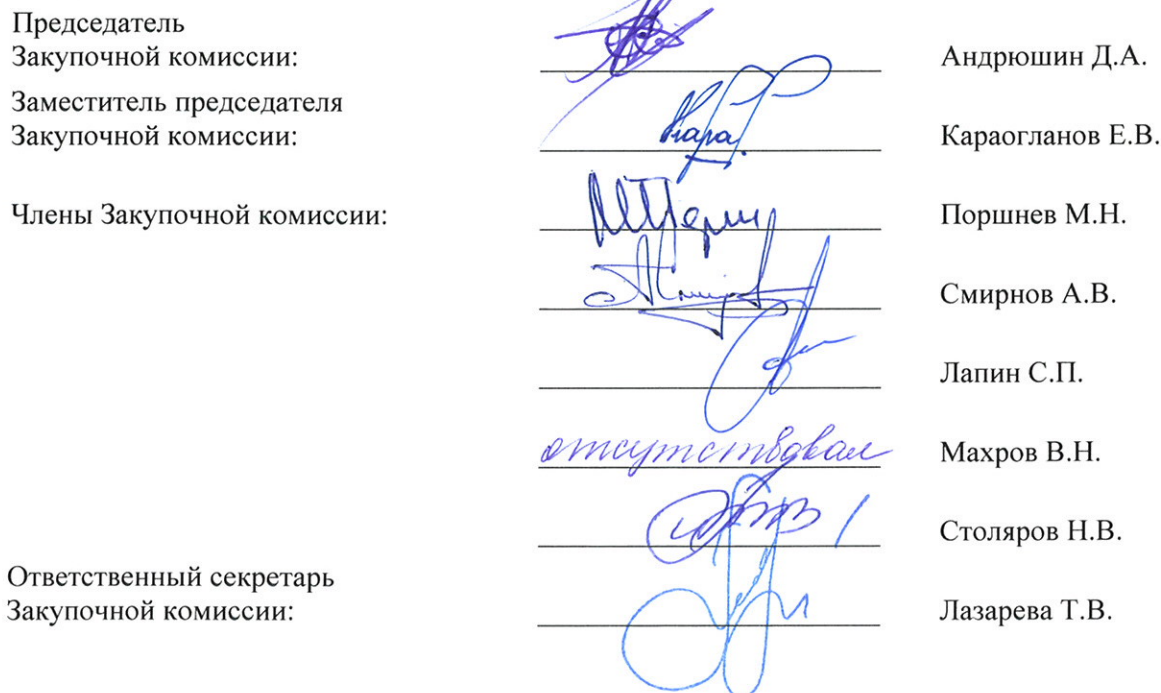 Председатель
Закупочной комиссии: Андрюшин Д.А.
Заместитель председателя
Закупочной комиссии: Караогланов Е.В.
Члены Закупочной комиссии: Поршнев М.Н.
Смирнов А.В.
Лапин С.П.
отсутствовал Махров В.Н.
Столяров Н.В.
Ответственный секретарь
Закупочной комиссии: Лазарева Т.В.